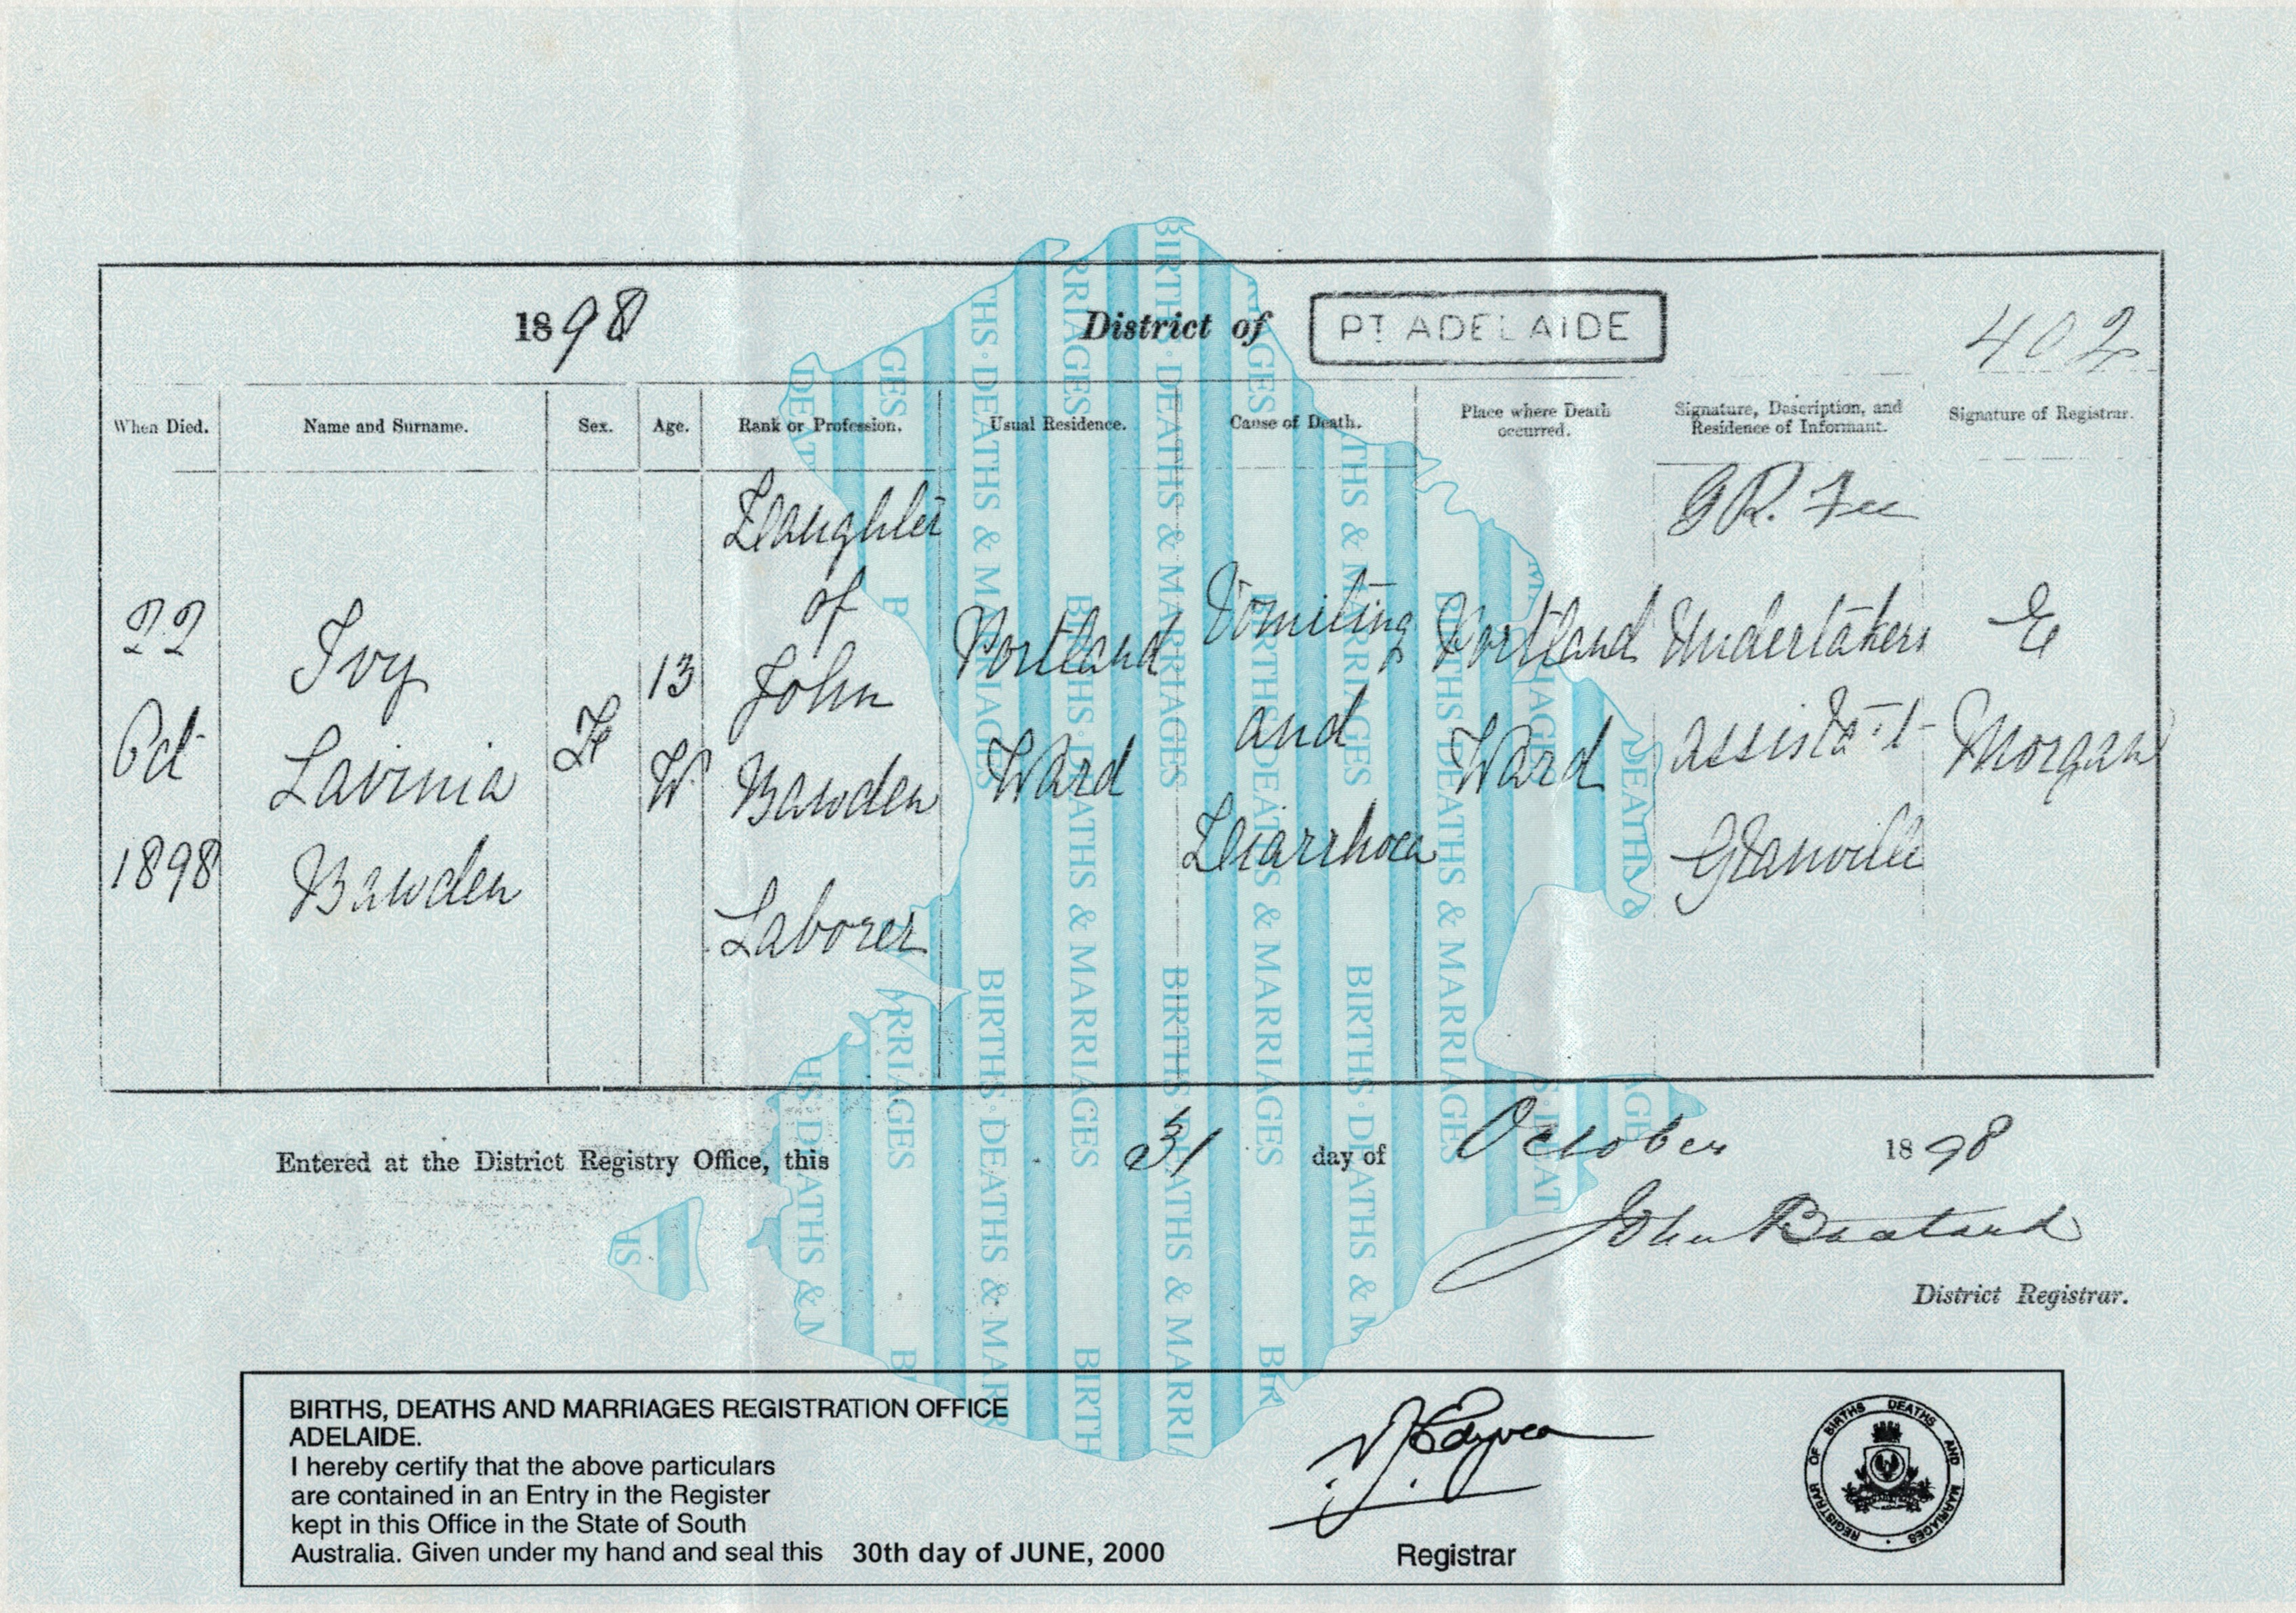 1898 District of PT ADELAIDE 402
When Died. Name and Surname. Sex. Age. Rank or Profession. Usual Residence. Cause of Death. Place where Death occurred. Signature, Description, and Residence of Informant. Signature of Registrar.
22 Oct 1898
Ivy Lavinia Bawden
Fe
13 W
Daughter of John Bawden Laborer
Portland Ward
Vomiting and Diarrhoea
Portland Ward
G R. Fee Undertakers assista-t Glanville
E Morgan
Entered at the District Registry Office, this 31 day of October 1898
John
District Registrar.
BIRTHS, DEATHS AND MARRIAGES REGISTRATION OFFICE
ADELAIDE.
I hereby certify that the above particulars
are contained in an Entry in the Register
kept in this Office in the State of South
Australia. Given under my hand and seal this 30th day of JUNE, 2000
Registrar
REGISTRAR OF BIRTHS DEATHS AND MARRIAGES
BIRTHS · DEATHS & MARRIAGES